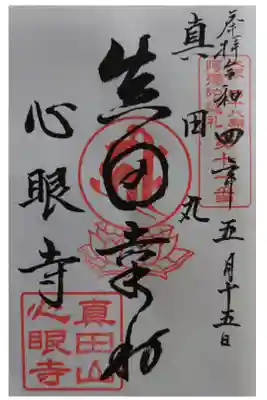 奉拝 令和四年五月十五日
真田丸
真田幸村
心眼寺
真田山
心眼寺